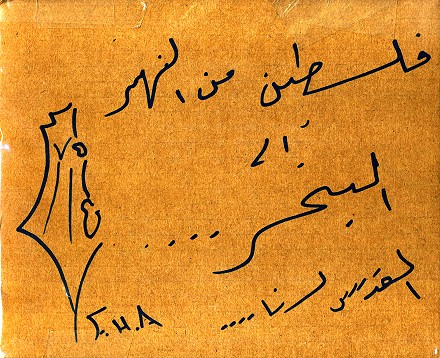 فلسطين من النهر
الى
البحر.....
القدس لنا....
E.H.A